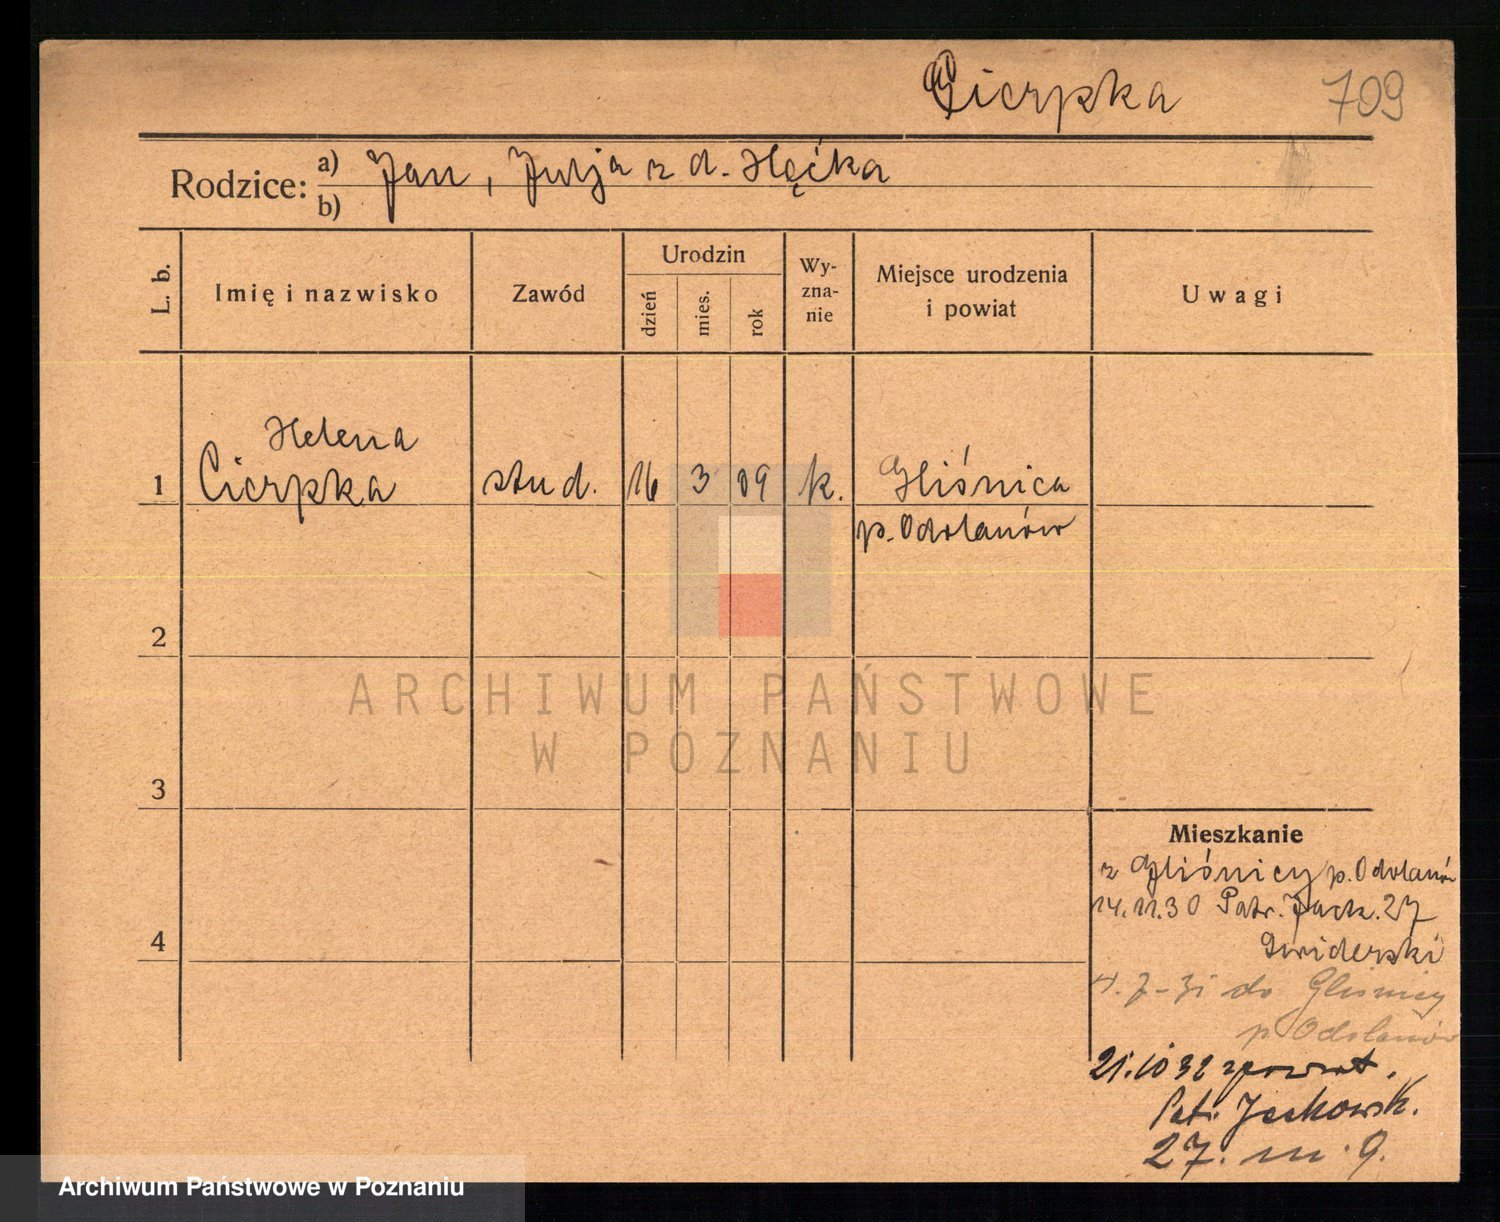 Cierpka 709
Rodzice: a) Jan, Julja z d. Hęćka
b)
L. b.
Imię i nazwisko
Zawód
Urodzin
dzień
mies.
rok
Wy-
zna-
nie
Miejsce urodzenia
i powiat
Uwagi
Helena
1 Cierpka stud. 16 3 09 k. Gliśnica
p. Odolanów
2
ARCHIWUM PAŃSTWOWE
W POZNANIU
3
Mieszkanie
z Gliśnicy p. Odolanów
14.11.30 Patr. Jack. 27
4
Świderski
4.7-31 do Gliśnicy
p. Odolanów
21.10 32 zpowrot.
Patr. Jackowsk.
27. m. 9.
Archiwum Państwowe w Poznaniu